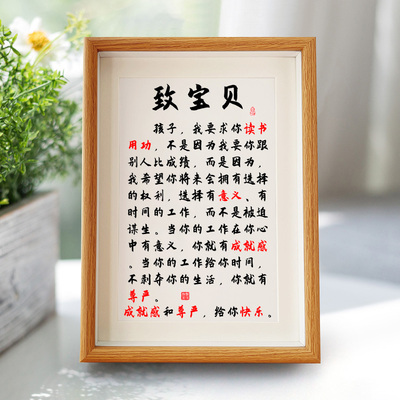 致宝贝
孩子，我要求你读书
用功，不是因为我要你跟
别人比成绩，而是因为，
我希望你将来会拥有选择
的权利，选择有意义、有
时间的工作，而不是被迫
谋生。当你的工作在你心
中有意义，你就有成就感
。当你的工作给你时间，
不剥夺你的生活，你就有
尊严。
成就感和尊严，给你快乐。